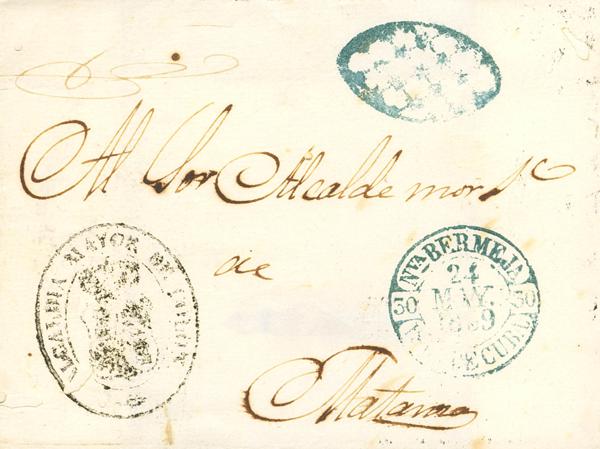 Al Sor Alcalde mor
de
Matanzas
ALCALDIA MAYOR DE
Nva BERMEJA
24
MAY.
1859
50 50
DE CUBA